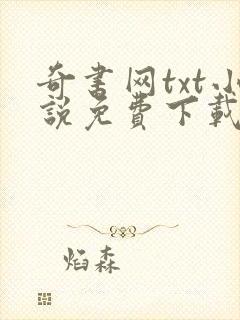 奇書网txt小
說免費下載
焰森